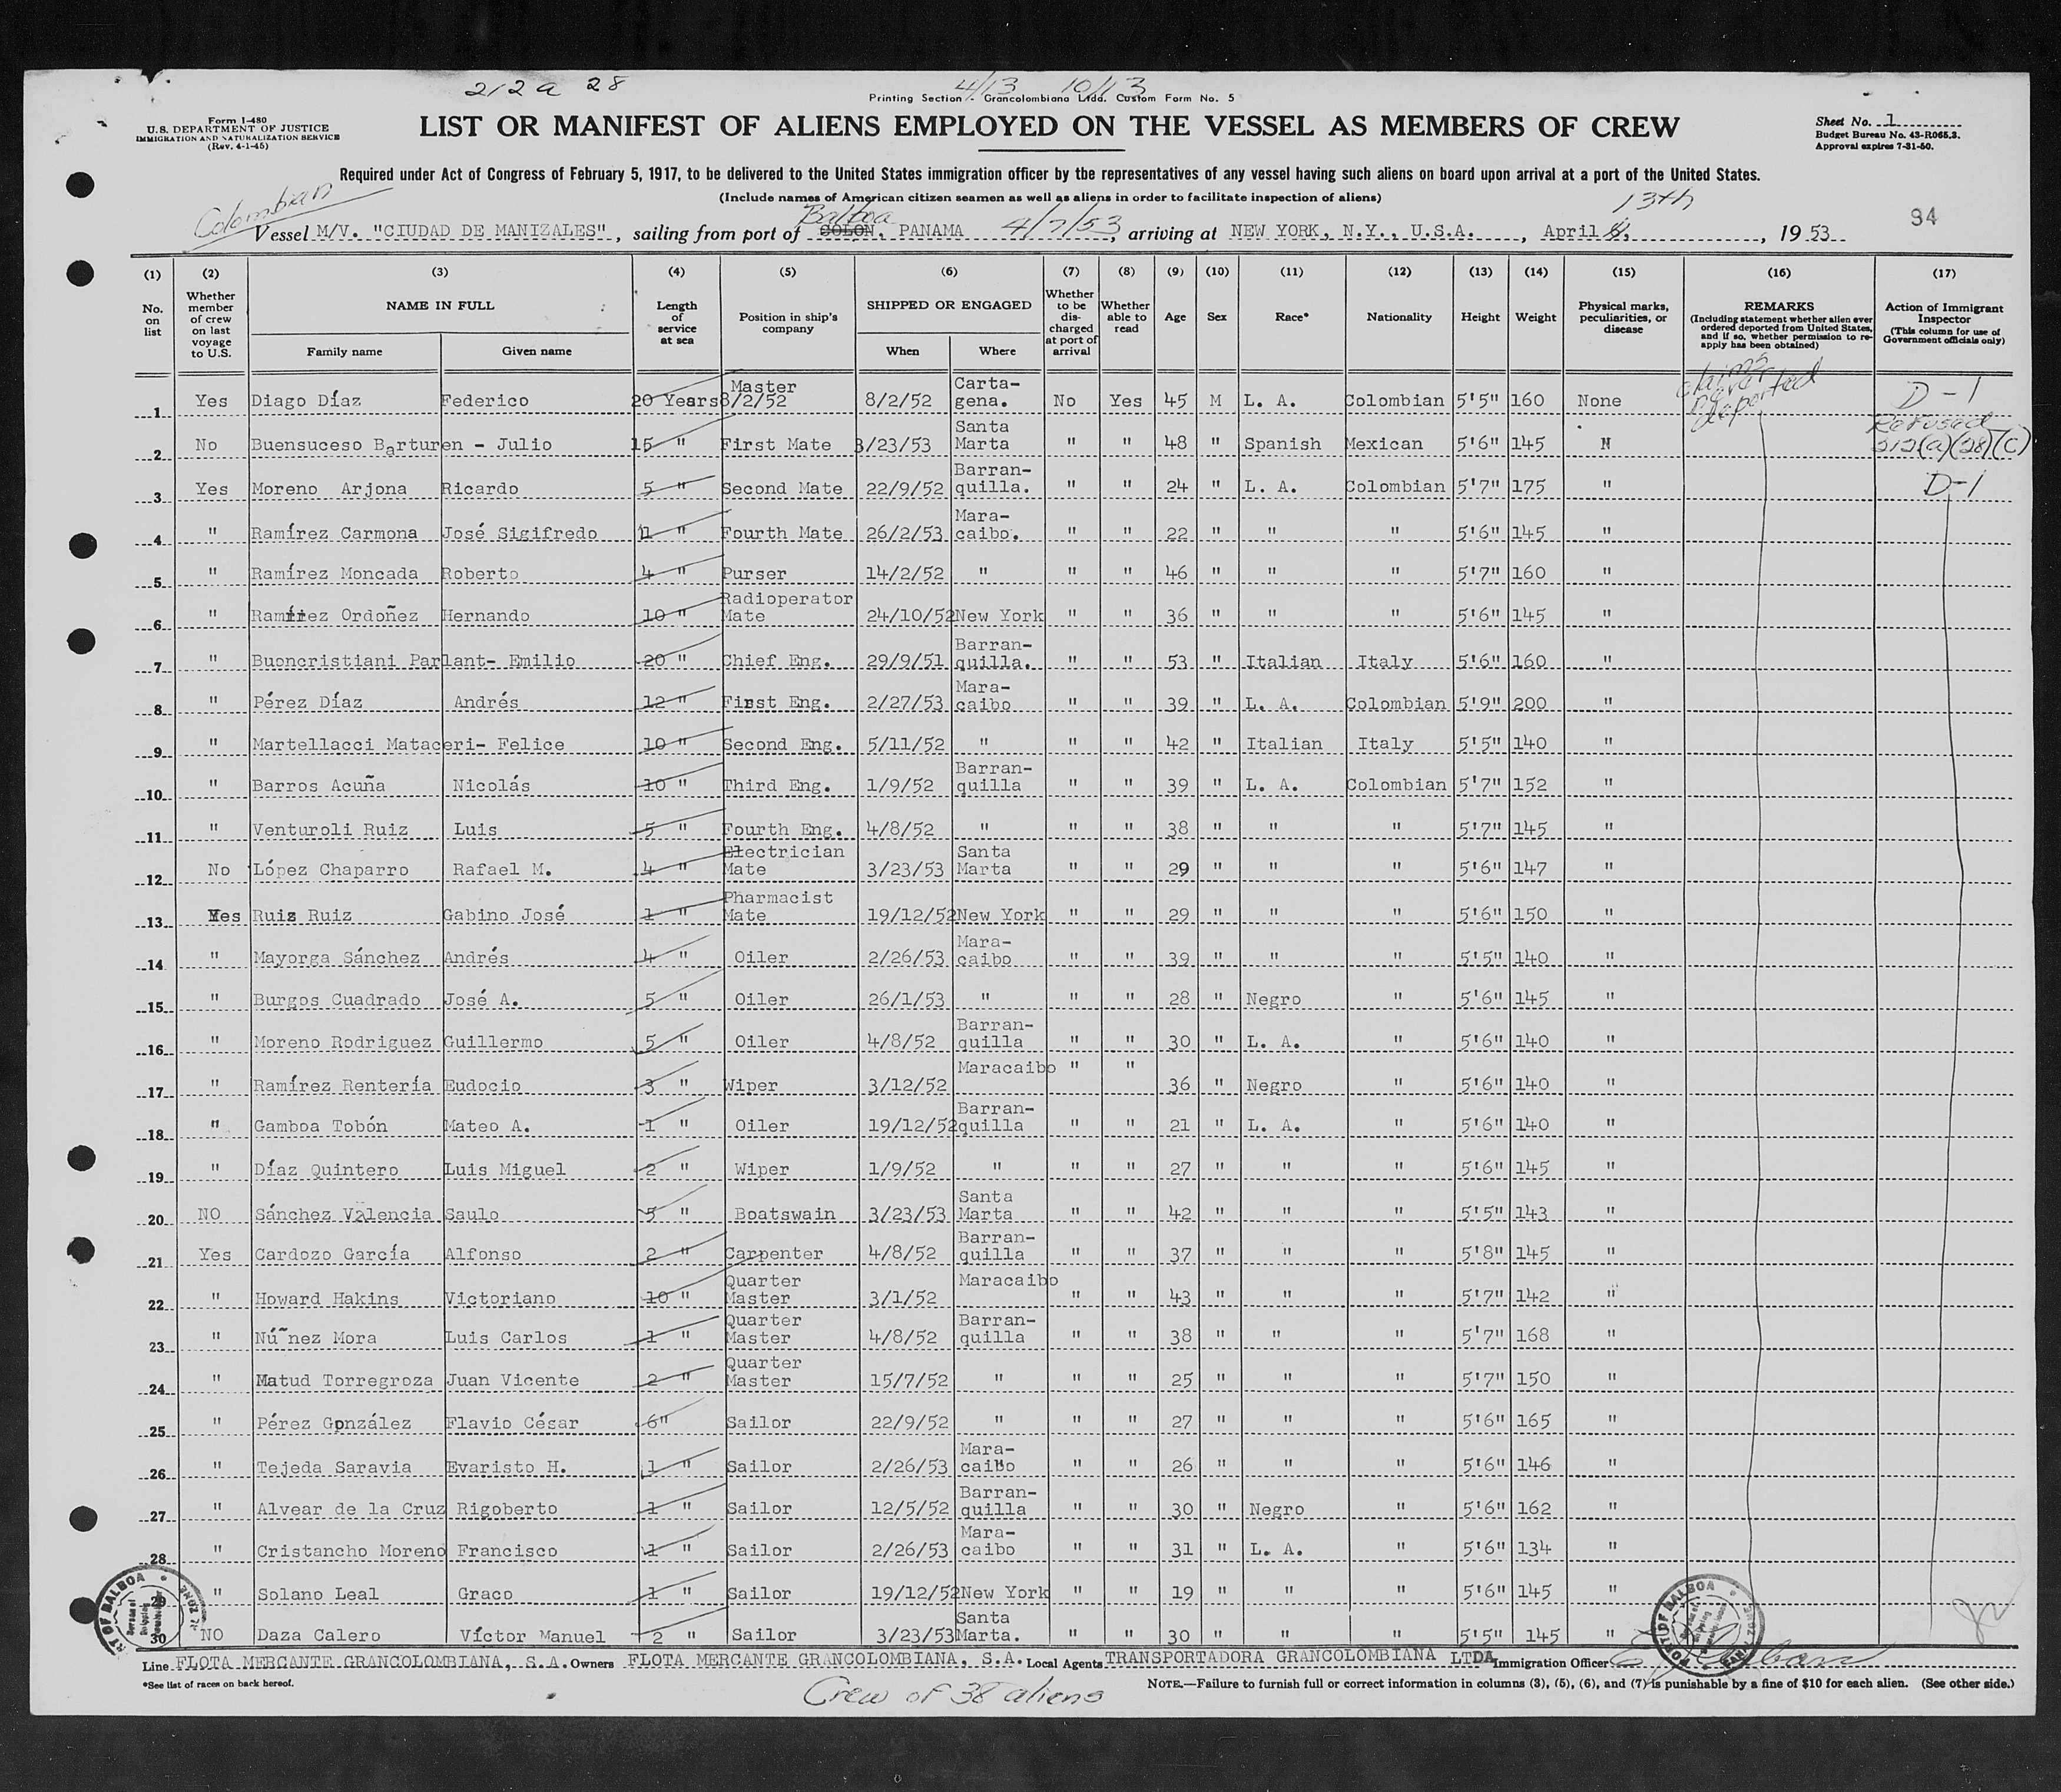 212 a 28
4/13 10/13
Printing Section. Grancolombiana Ltda. Custom Form No. 5
Form I-480
U.S. DEPARTMENT OF JUSTICE
IMMIGRATION AND NATURALIZATION SERVICE
(Rev. 4-1-45)
LIST OR MANIFEST OF ALIENS EMPLOYED ON THE VESSEL AS MEMBERS OF CREW
Sheet No. 1
Budget Bureau No. 43-R065.3.
Approval expires 7-31-50.
Required under Act of Congress of February 5, 1917, to be delivered to the United States immigration officer by the representatives of any vessel having such aliens on board upon arrival at a port of the United States.
(Include names of American citizen seamen as well as aliens in order to facilitate inspection of aliens)
Colombian
Balboa
13th
94
Vessel M/V. "CIUDAD DE MANIZALES", sailing from port of COLON, PANAMA 4/7/53, arriving at NEW YORK, N.Y., U.S.A., April , 1953
(1) (2) (3) (4) (5) (6) (7) (8) (9) (10) (11) (12) (13) (14) (15) (16) (17)
No. on list
Whether member of crew on last voyage to U.S.
NAME IN FULL
Family name
Given name
Length of service at sea
Position in ship's company
SHIPPED OR ENGAGED
When
Where
Whether to be discharged at port of arrival
Whether able to read
Age
Sex
Race*
Nationality
Height
Weight
Physical marks, peculiarities, or disease
REMARKS
(Including statement whether alien ever ordered deported from United States, and if so, whether permission to re-apply has been obtained)
Action of Immigrant Inspector
(This column for use of Government officials only)
1 Yes Diago Díaz Federico 20 Years Master 8/2/52 8/2/52 Carta-gena. No Yes 45 M L. A. Colombian 5'5" 160 None claims never deported D-1
2 No Buensuceso Barturen - Julio 15 " First Mate 3/23/53 Santa Marta " " 48 " Spanish Mexican 5'6" 145 N Refused 212(a)(28)(C)
3 Yes Moreno Arjona Ricardo 5 " Second Mate 22/9/52 Barran-quilla. " " 24 " L. A. Colombian 5'7" 175 " D-1
4 " Ramírez Carmona José Sigifredo 1 " Fourth Mate 26/2/53 Mara-caibo. " " 22 " " " 5'6" 145 "
5 " Ramírez Moncada Roberto 4 " Purser 14/2/52 " " " 46 " " " 5'7" 160 "
6 " Ramírez Ordoñez Hernando 10 " Radioperator Mate 24/10/52 New York " " 36 " " " 5'6" 145 "
7 " Buoncristiani Parlant- Emilio 20 " Chief Eng. 29/9/51 Barran-quilla. " " 53 " Italian Italy 5'6" 160 "
8 " Pérez Díaz Andrés 12 " First Eng. 2/27/53 Mara-caibo " " 39 " L. A. Colombian 5'9" 200 "
9 " Martellacci Mataceri- Felice 10 " Second Eng. 5/11/52 " " " 42 " Italian Italy 5'5" 140 "
10 " Barros Acuña Nicolás 10 " Third Eng. 1/9/52 Barran-quilla " " 39 " L. A. Colombian 5'7" 152 "
11 " Venturoli Ruiz Luis 5 " Fourth Eng. 4/8/52 " " " 38 " " " 5'7" 145 "
12 No López Chaparro Rafael M. 4 " Electrician Mate 3/23/53 Santa Marta " " 29 " " " 5'6" 147 "
13 Yes Ruiz Ruiz Gabino José 1 " Pharmacist Mate 19/12/52 New York " " 29 " " " 5'6" 150 "
14 " Mayorga Sánchez Andrés 4 " Oiler 2/26/53 Mara-caibo " " 39 " " " 5'5" 140 "
15 " Burgos Cuadrado José A. 5 " Oiler 26/1/53 " " " 28 " Negro " 5'6" 145 "
16 " Moreno Rodriguez Guillermo 5 " Oiler 4/8/52 Barran-quilla " " 30 " L. A. " 5'6" 140 "
17 " Ramírez Rentería Eudocio 3 " Wiper 3/12/52 Maracaibo " " 36 " Negro " 5'6" 140 "
18 " Gamboa Tobón Mateo A. 1 " Oiler 19/12/52 Barran-quilla " " 21 " L. A. " 5'6" 140 "
19 " Díaz Quintero Luis Miguel 2 " Wiper 1/9/52 " " " 27 " " " 5'6" 145 "
20 NO Sánchez Valencia Saulo 5 " Boatswain 3/23/53 Santa Marta " " 42 " " " 5'5" 143 "
21 Yes Cardozo García Alfonso 2 " Carpenter 4/8/52 Barran-quilla " " 37 " " " 5'8" 145 "
22 " Howard Hakins Victoriano 10 " Quarter Master 3/1/52 Maracaibo " " 43 " " " 5'7" 142 "
23 " Núñez Mora Luis Carlos 1 " Quarter Master 4/8/52 Barran-quilla " " 38 " " " 5'7" 168 "
24 " Matud Torregroza Juan Vicente 2 " Quarter Master 15/7/52 " " " 25 " " " 5'7" 150 "
25 " Pérez González Flavio César 6" Sailor 22/9/52 " " " 27 " " " 5'6" 165 "
26 " Tejeda Saravia Evaristo H. 1 " Sailor 2/26/53 Mara-caibo " " 26 " " " 5'6" 146 "
27 " Alvear de la Cruz Rigoberto 1 " Sailor 12/5/52 Barran-quilla " " 30 " Negro " 5'6" 162 "
28 " Cristancho Moreno Francisco 1 " Sailor 2/26/53 Mara-caibo " " 31 " L. A. " 5'6" 134 "
29 " Solano Leal Graco 1 " Sailor 19/12/52 New York " " 19 " " " 5'6" 145 "
30 NO Daza Calero Víctor Manuel 2 " Sailor 3/23/53 Santa Marta. " " 30 " " " 5'5" 145 "
PORT OF BALBOA
Line FLOTA MERCANTE GRANCOLOMBIANA, S.A. Owners FLOTA MERCANTE GRANCOLOMBIANA, S.A. Local Agents TRANSPORTADORA GRANCOLOMBIANA LTDA Immigration Officer
*See list of races on back hereof.
Crew of 38 aliens
NOTE.—Failure to furnish full or correct information in columns (3), (5), (6), and (7) is punishable by a fine of $10 for each alien. (See other side.)